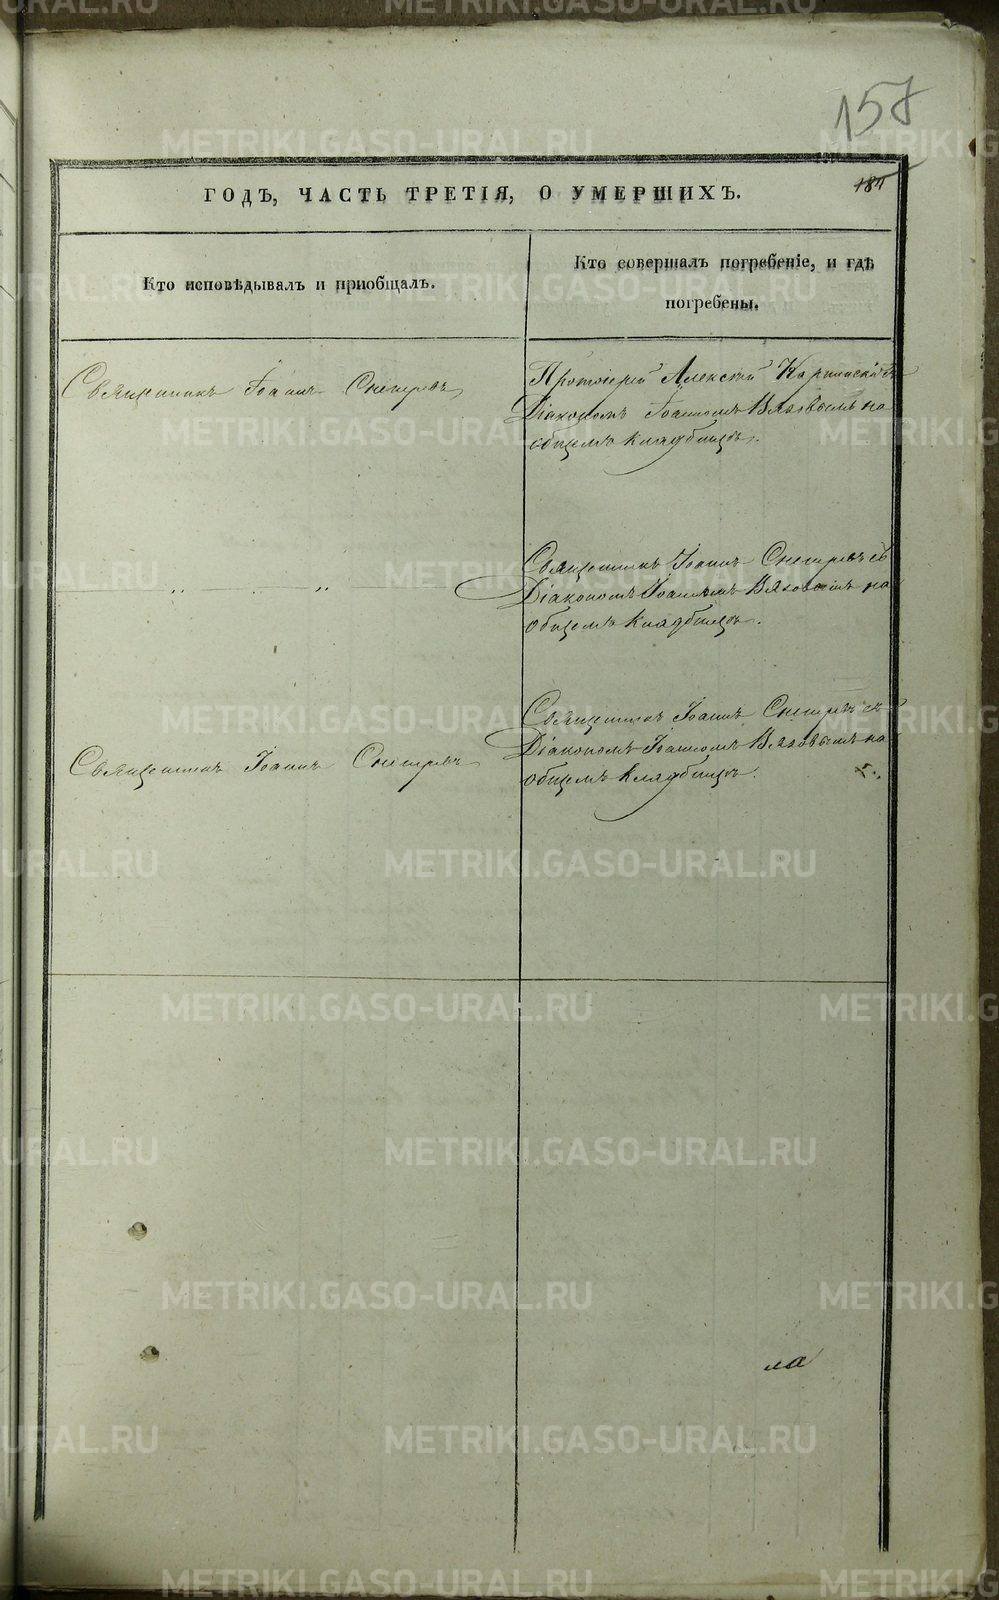 157
184
ГОДЪ, ЧАСТЬ ТРЕТІЯ, О УМЕРШИХЪ.
Кто исповѣдывалъ и пріобщалъ.
Кто совершалъ погребеніе, и гдѣ
погребены.
Священникъ Іоаннъ
Протоіерей Алексій Карпинскій съ
Діакономъ Іоанномъ Вяховымъ на
общемъ кладбищѣ.
„ „
Священникъ Іоаннъ съ
Діакономъ Іоанномъ Вяховымъ на
общемъ кладбищѣ.
Священникъ Іоаннъ
Священникъ Іоаннъ съ
Діакономъ Іоанномъ Вяховымъ на
общемъ кладбищѣ.
ла
METRIKI.GASO-URAL.RU